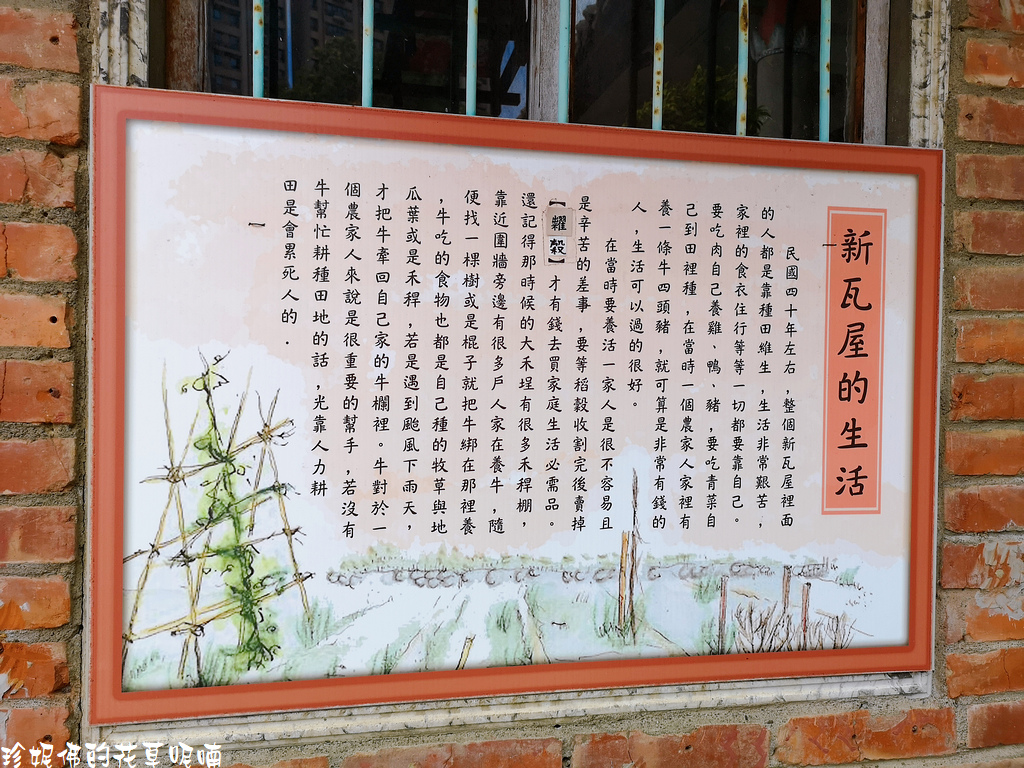 新瓦屋的生活
民國四十年左右，整個新瓦屋裡面
的人都是靠種田維生，生活非常艱苦，
家裡的食衣住行等等一切都要靠自己。
要吃肉自己養雞、鴨、豬，要吃青菜自
己到田裡種，在當時一個農家人家裡有
養一條牛四頭豬，就可算是非常有錢的
人，生活可以過的很好。
在當時要養活一家人是很不容易且
是辛苦的差事，要等稻穀收割完後賣掉
【糶穀】才有錢去買家庭生活必需品。
還記得那時候的大禾埕有很多禾稈棚，
靠近圍牆旁邊有很多戶人家在養牛，隨
便找一棵樹或是棍子就把牛綁在那裡養
，牛吃的食物也都是自己種的牧草與地
瓜葉或是禾稈，若是遇到颱風下雨天，
才把牛牽回自己家的牛欄裡。牛對於一
個農家人來說是很重要的幫手，若沒有
牛幫忙耕種田地的話，光靠人力耕
田是會累死人的.
珍妮佛的花草呢喃